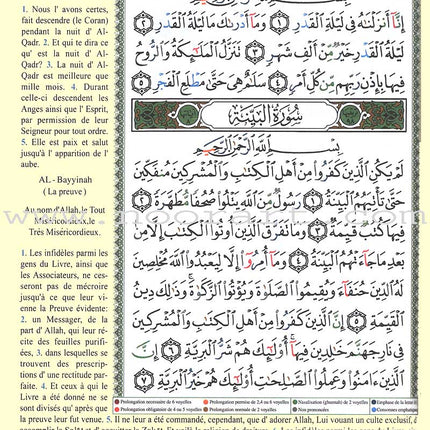 1. Nous l' avons certes,
fait descendre (le Coran)
pendant la nuit d' Al-
Qadr. 2. Et qui te dira ce
qu' est la nuit d' Al-
Qadr? 3. La nuit d' Al-
Qadr est meilleure que
mille mois. 4. Durant
celle-ci descendent les
Anges ainsi que l' Esprit,
par permission de leur
Seigneur pour tout ordre.
5. Elle est paix et salut
jusqu'à l' apparition de l'
aube.
AL - Bayyinah
(La preuve)
Au nom d'Allah, le Tout
Miséricordieux, le
Très Miséricordieux.
1. Les infidèles parmi les
gens du Livre, ainsi que
les Associateurs, ne ces-
seront pas de mécroire
jusqu'à ce que leur vi-
enne la Preuve évidente:
2. un Messager, de la
part d' Allah, qui leur ré-
cite des feuilles purifi-
ées, 3. dans lesquelles se
trouvent des prescrip-
tions d'une rectitude par-
faite. 4. Et ceux à qui le
Livre a été donné ne se
sont divisés qu' après que
la preuve leur fut venue. 5. Il ne leur a été commandé, cependant, que d' adorer Allah, Lui vouant un culte exclusif,
إِنَّا أَنزَلْنَاهُ فِي لَيْلَةِ الْقَدْرِ ۝١ وَمَا أَدْرَاكَ مَا لَيْلَةُ الْقَدْرِ ۝٢
لَيْلَةُ الْقَدْرِ خَيْرٌ مِّنْ أَلْفِ شَهْرٍ ۝٣ تَنَزَّلُ الْمَلَائِكَةُ وَالرُّوحُ
فِيهَا بِإِذْنِ رَبِّهِم مِّن كُلِّ أَمْرٍ ۝٤ سَلَامٌ هِيَ حَتَّىٰ مَطْلَعِ الْفَجْرِ ۝٥
سُورَةُ الْبَيِّنَةِ
بِسْمِ اللَّهِ الرَّحْمَٰنِ الرَّحِيمِ
لَمْ يَكُنِ الَّذِينَ كَفَرُوا مِنْ أَهْلِ الْكِتَابِ وَالْمُشْرِكِينَ مُنفَكِّينَ
حَتَّىٰ تَأْتِيَهُمُ الْبَيِّنَةُ ۝١ رَسُولٌ مِّنَ اللَّهِ يَتْلُو صُحُفًا مُّطَهَّرَةً ۝٢
فِيهَا كُتُبٌ قَيِّمَةٌ ۝٣ وَمَا تَفَرَّقَ الَّذِينَ أُوتُوا الْكِتَابَ إِلَّا مِن
بَعْدِ مَا جَاءَتْهُمُ الْبَيِّنَةُ ۝٤ وَمَا أُمِرُوا إِلَّا لِيَعْبُدُوا اللَّهَ مُخْلِصِينَ
لَهُ الدِّينَ حُنَفَاءَ وَيُقِيمُوا الصَّلَاةَ وَيُؤْتُوا الزَّكَاةَ وَذَٰلِكَ دِينُ
الْقَيِّمَةِ ۝٥ إِنَّ الَّذِينَ كَفَرُوا مِنْ أَهْلِ الْكِتَابِ وَالْمُشْرِكِينَ
فِي نَارِ جَهَنَّمَ خَالِدِينَ فِيهَا أُولَٰئِكَ هُمْ شَرُّ الْبَرِيَّةِ ۝٦ إِنَّ
الَّذِينَ آمَنُوا وَعَمِلُوا الصَّالِحَاتِ أُولَٰئِكَ هُمْ خَيْرُ الْبَرِيَّةِ ۝٧
Prolongation nécessaire de 6 voyelles
Prolongation permise de 2,4 ou 6 voyelles
Nasalisation (ghunnah) de 2 voyelles
Prolongation obligatoire de 4 ou 5 voyelles
Prolongation normale de 2 voyelles
Non prononcées
Consonnes emphatiques